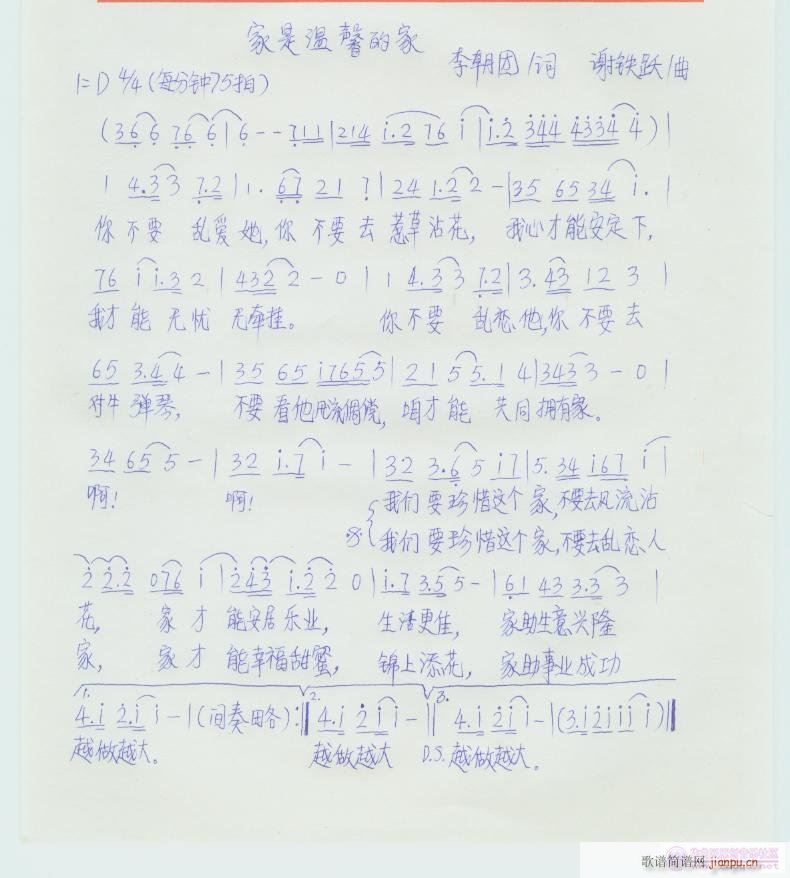 家是温馨的家
李朝团/词 谢铁跃/曲
1=D 4/4(每分钟75拍)
(36 6 76 6|6--711|214 i.2 76 i|i.2 344 4334 4)|
1 4.33 7.2|1. 67 21 7|24 1.22-|35 65 34 i.|
你不要 乱爱她,你 不要去 惹草沾花, 我心才能安定下,
76 i i.3 2|4322-0|1 4.33 7.2|3. 43 12 3|
我才能 无忧 无牵挂。 你不要 乱恋他,你 不要去
65 3.44-|35 65 i7655|21 55.1 4|3433-0|
对牛 弹琴, 不要看他 倜傥, 咱才能 共同拥有家。
34 655-|32 i.7i-|32 3.65 i7|5. 34 i67 i|
啊! 啊! 我们要珍惜这个 家,不要去风流沾
我们要珍惜这个家,不要去乱恋人
2 2.2 076 i|243 i.22 0|i.7 3.55-|61 43 3.3 3|
花, 家才能安居乐业, 生活更佳, 家助生意兴隆
家, 家才能幸福甜蜜, 锦上添花, 家助事业成功
1. 2. 3.
4.i 2.ii-|(间奏略):‖4.i 2ii-‖4.i 2ii-|(3.i2iiii)‖
越做越大。 越做越大 D.S.越做越大。
歌谱简谱网 jianpu.cn